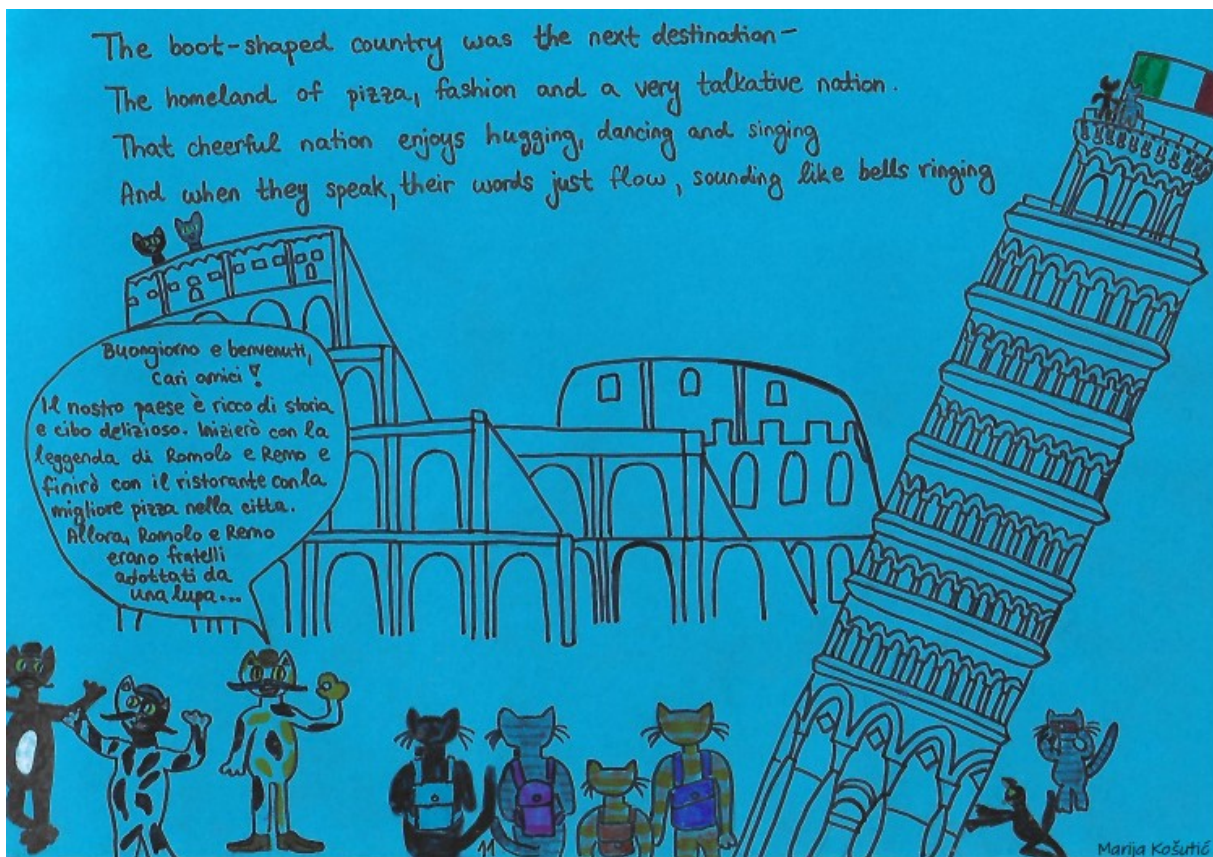 The boot-shaped country was the next destination-
The homeland of pizza, fashion and a very talkative nation.
That cheerful nation enjoys hugging, dancing and singing
And when they speak, their words just flow, sounding like bells ringing
Buongiorno e benvenuti,
Cari amici!
Il nostro paese è ricco di storia
e cibo delizioso. Inizierò con la
leggenda di Romolo e Remo e
finirò con il ristorante con la
migliore pizza nella citta.
Allora, Romolo e Remo
erano fratelli
adottati da
una lupa...
11
Marija Košutić